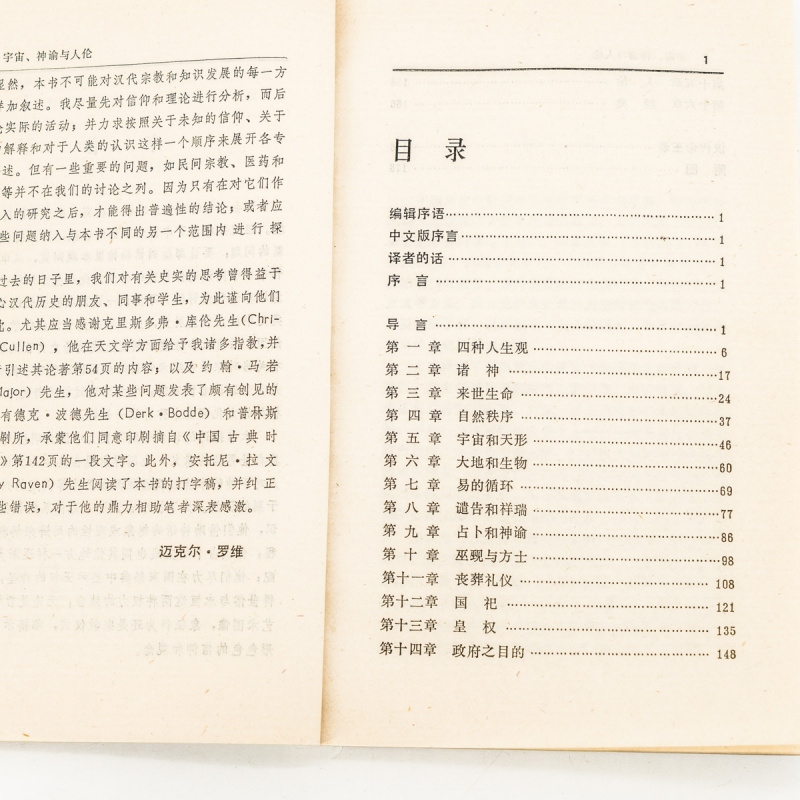 宇宙、神谕与人伦
显然，本书不可能对汉代宗教和知识发展的每一方
加叙述。我尽量先对信仰和理论进行分析，而后
实际的活动；并力求按照关于未知的信仰、关于
解释和对于人类的认识这样一个顺序来展开各专
述。但有一些重要的问题，如民间宗教、医药和
等并不在我们的讨论之列。因为只有在对它们作
入的研究之后，才能得出普遍性的结论；或者应
些问题纳入与本书不同的另一个范围内进行探
过去的日子里，我们对有关史实的思考曾得益于
心汉代历史的朋友、同事和学生，为此谨向他们
。尤其应当感谢克里斯多弗·库伦先生(Chri-
Cullen)，他在天文学方面给予我诸多指教，并
引述其论著第54页的内容；以及约翰·马若
Major) 先生，他对某些问题发表了颇有创见的
有德克·波德先生（Derk·Bodde）和普林斯
刷所，承蒙他们同意印刷摘自《中国古典时
》第142页的一段文字。此外，安托尼·拉文
y Raven）先生阅读了本书的打字稿，并纠正
些错误，对于他的鼎力相助笔者深表感激。
迈克尔·罗维
1
目 录
编辑序语……………………………………………1
中文版序言…………………………………………1
译者的话……………………………………………1
序 言………………………………………………1
导 言………………………………………………1
第 一 章 四种人生观……………………………6
第 二 章 诸 神…………………………………17
第 三 章 来世生命………………………………24
第 四 章 自然秩序………………………………37
第 五 章 宇宙和天形……………………………46
第 六 章 大地和生物……………………………60
第 七 章 易的循环………………………………69
第 八 章 谴告和祥瑞……………………………77
第 九 章 占卜和神谕……………………………86
第 十 章 巫觋与方士……………………………98
第十一章 丧葬礼仪………………………………108
第十二章 国 祀…………………………………121
第十三章 皇 权…………………………………135
第十四章 政府之目的……………………………148